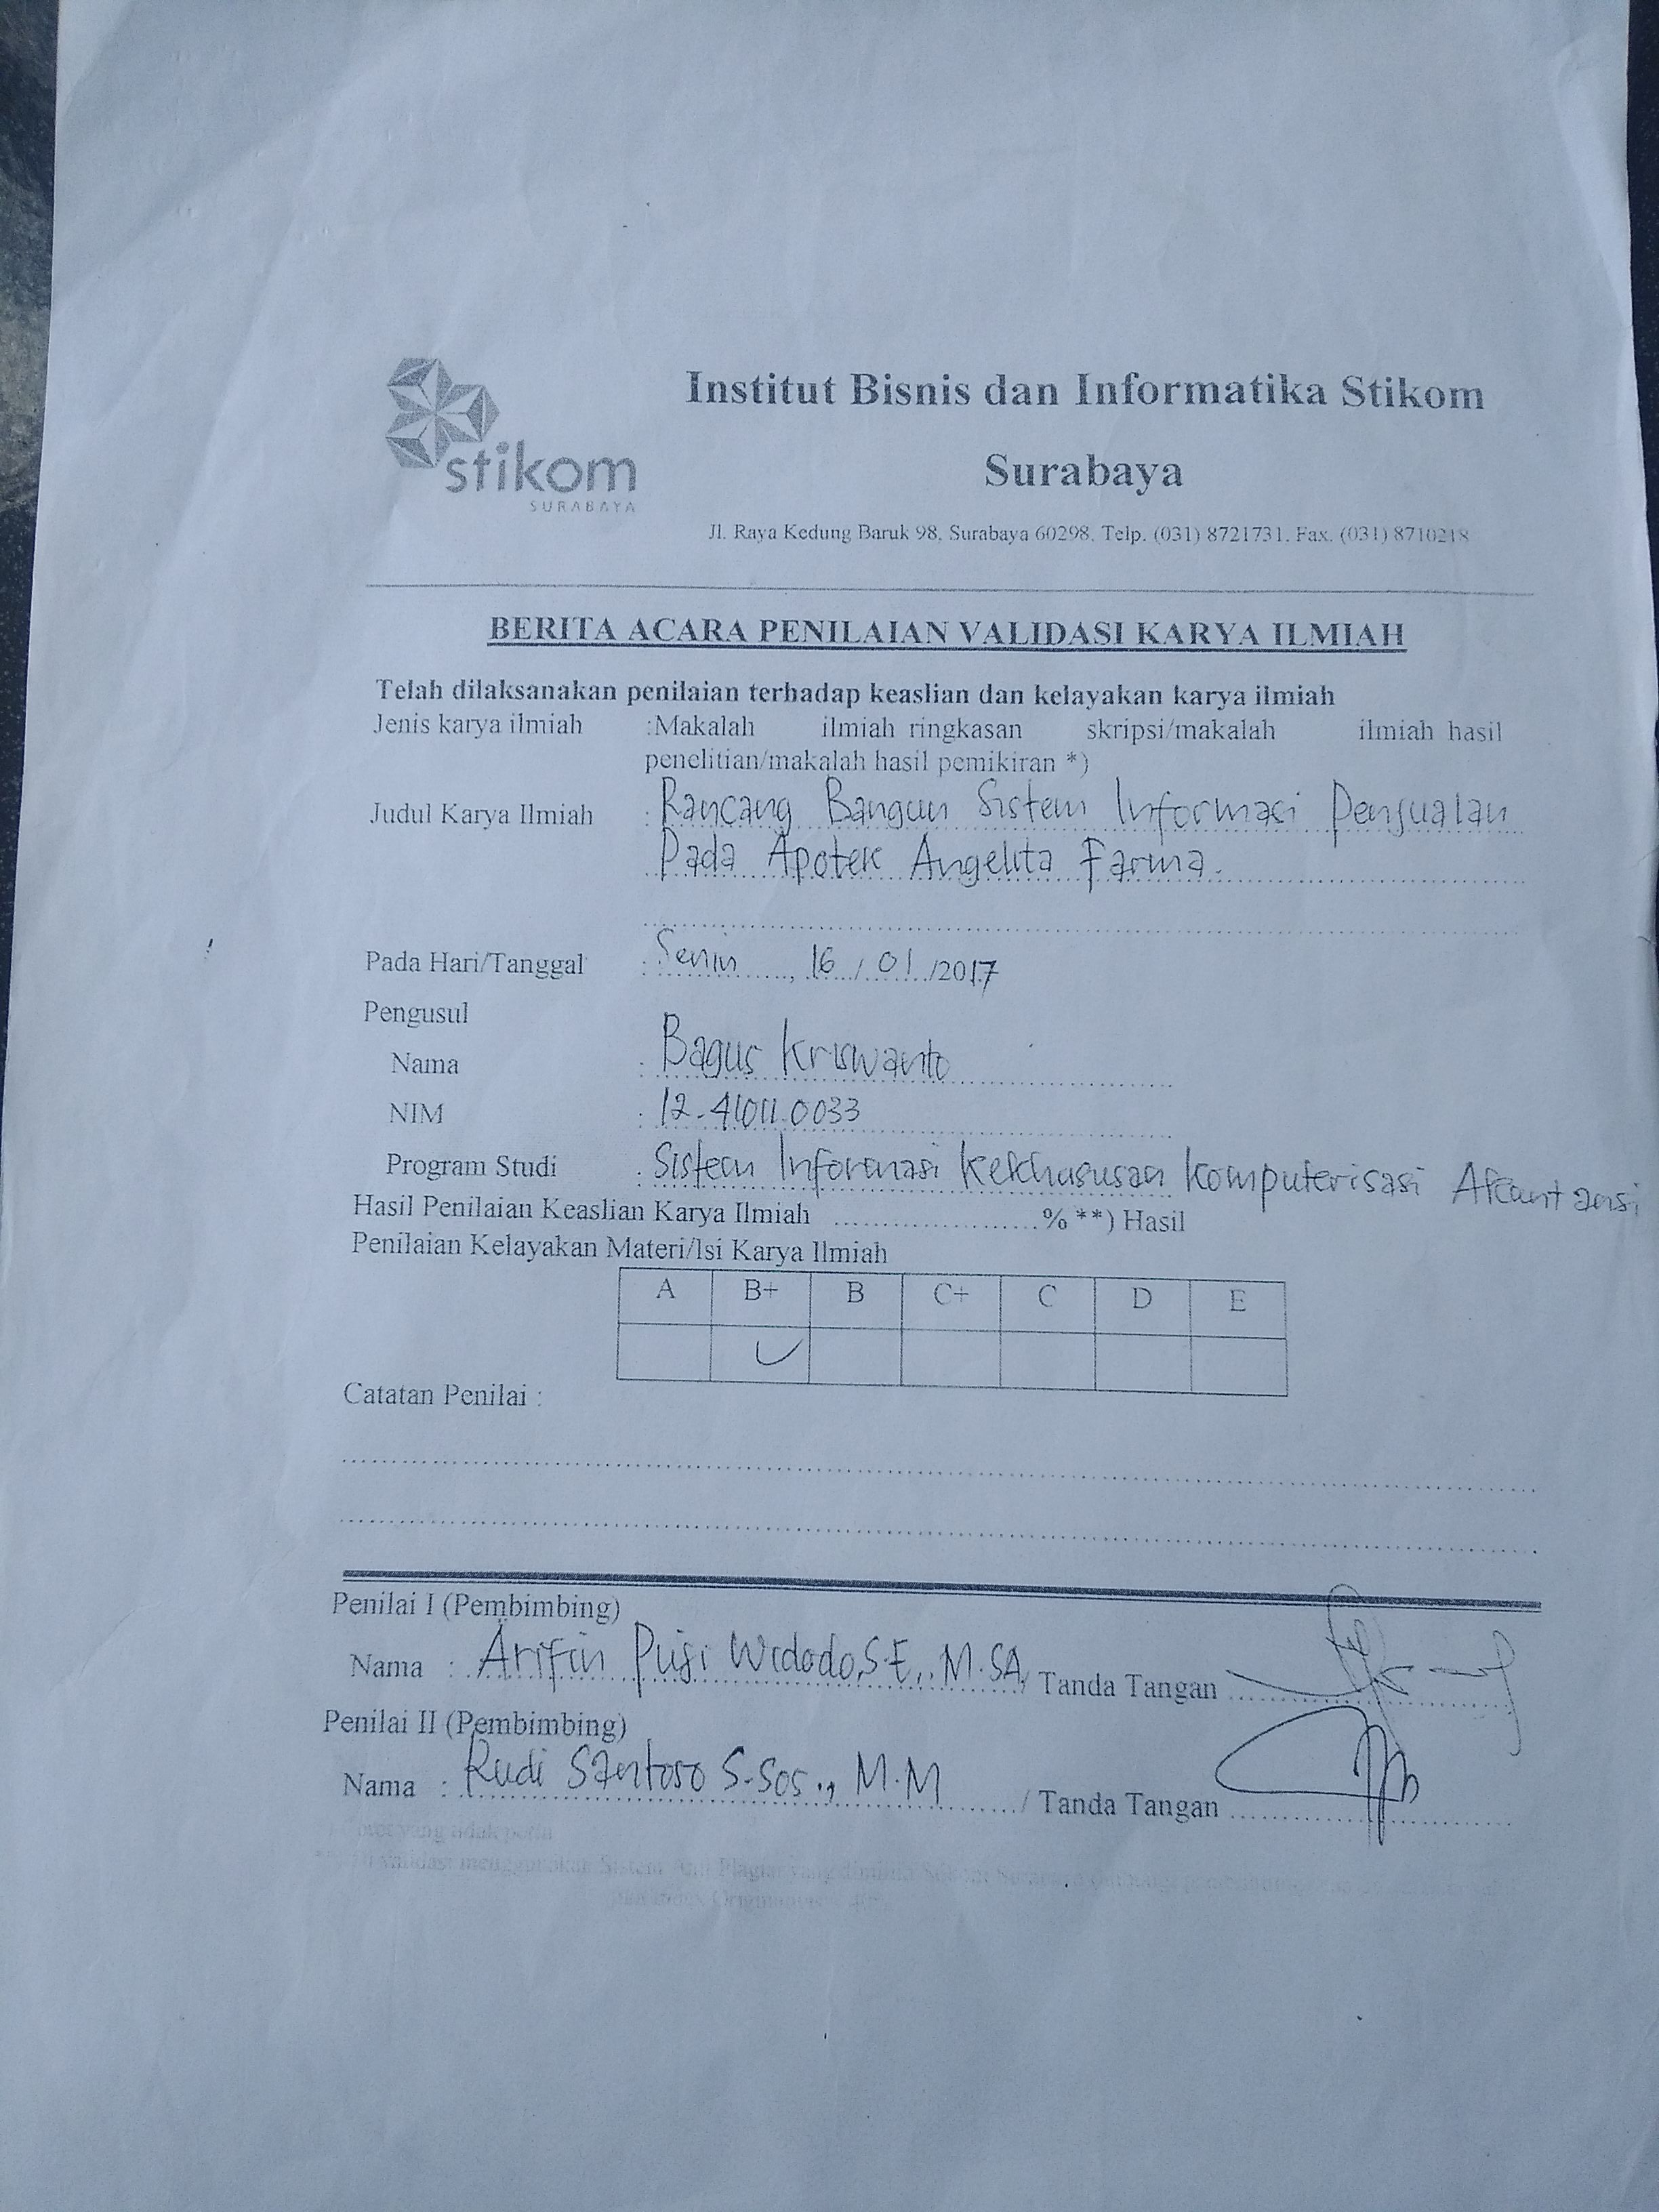 stikom
SURABAYA
Institut Bisnis dan Informatika Stikom
Surabaya
Jl. Raya Kedung Baruk 98, Surabaya 60298, Telp. (031) 8721731, Fax. (031) 8710218
BERITA ACARA PENILAIAN VALIDASI KARYA ILMIAH
Telah dilaksanakan penilaian terhadap keaslian dan kelayakan karya ilmiah
Jenis karya ilmiah :Makalah ilmiah ringkasan skripsi/makalah ilmiah hasil
penelitian/makalah hasil pemikiran *)
Judul Karya Ilmiah : Rancang Bangun Sistem Informasi Penjualan
Pada Apotek Angelita Farma.
Pada Hari/Tanggal : Senin, 16 / 01 /2017
Pengusul
Nama : Bagus Kriswanto
NIM : 12.41011.0033
Program Studi : Sistem Informasi Kekhususan Komputerisasi Akuntansi
Hasil Penilaian Keaslian Karya Ilmiah ..................... % **) Hasil
Penilaian Kelayakan Materi/Isi Karya Ilmiah
A B+ B C+ C D E
✓
Catatan Penilai :
Penilai I (Pembimbing)
Nama : Arifin Puji Widodo, S.E., M.SA / Tanda Tangan
Penilai II (Pembimbing)
Nama : Rudi Santoso S.Sos., M.M / Tanda Tangan
yang tidak perlu
validasi menggunakan Sistem Anti Plagiat yang dimiliki Stikom Surabaya